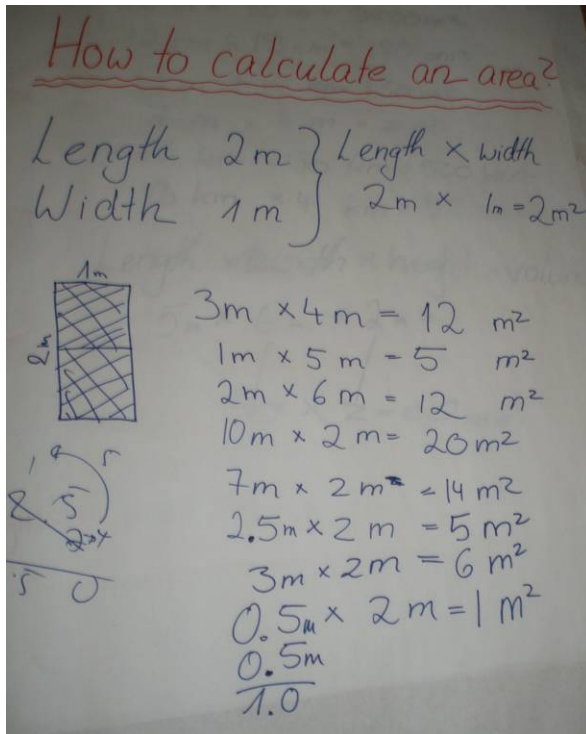 How to calculate an area?
Length 2m } Length × width
Width 1m } 2m × 1m = 2m²
1m
2m
3m × 4m = 12 m²
1m × 5m = 5 m²
2m × 6m = 12 m²
10m × 2m = 20m²
7m × 2m = 14 m²
2.5m × 2m = 5 m²
3m × 2m = 6 m²
0.5m × 2m = 1 m²
0.5m
1.0